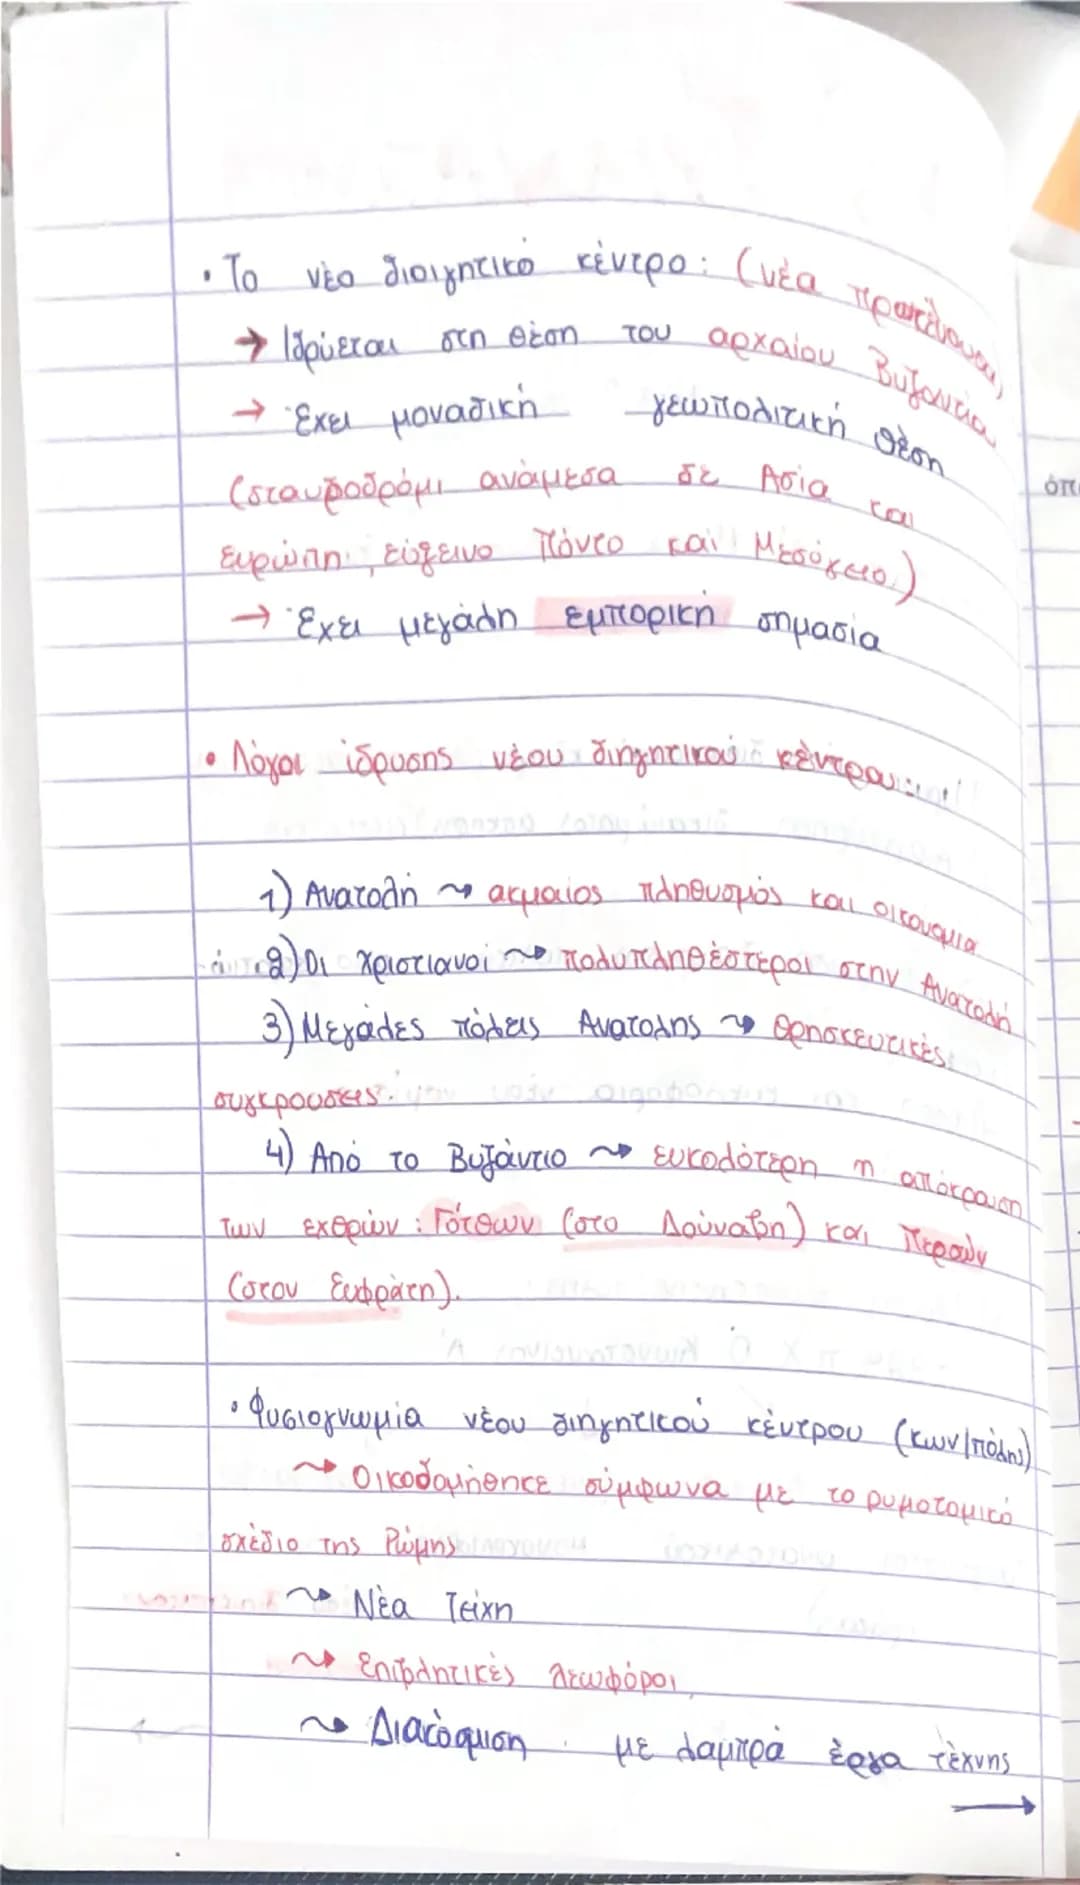 • Το νέο διοικητικό κέντρο: (νέα πρωτεύουσα)
→ Ιδρύεται στη θέση του αρχαίου Βυζαντίου
→ Έχει μοναδική γεωπολιτική θέση
(σταυροδρόμι ανάμεσα σε Ασία και
Ευρώπη, Εύξεινο Πόντο και Μεσόγειο.)
→ Έχει μεγάλη εμπορική σημασία
• Λόγοι ίδρυσης νέου διηγητικού κέντρου:
1) Ανατολή ⇝ ακμαίος πληθυσμός και οικονομία
2) Οι Χριστιανοί ⇝ πολυπληθέστεροι στην Ανατολή
3) Μεγάλες πόλεις Ανατολής ⇝ θρησκευτικές
συγκρουσεις.
4) Από το Βυζάντιο ⇝ ευκολότερη η απόκρουση
των εχθρών: Γότθων (στο Δούναβη) και Περσών
(στον Ευφράτη).
• Φυσιογνωμία νέου διηγητικού κέντρου (κων/πόλης)
⇝ Οικοδομήθηκε σύμφωνα με το ρυμοτομικό
σχέδιο της Ρώμης
⇝ Νέα Τείχη
⇝ Επιβλητικές λεωφόροι
⇝ Διακόσμιση με λαμπρά έργα τέχνης
→
οπ